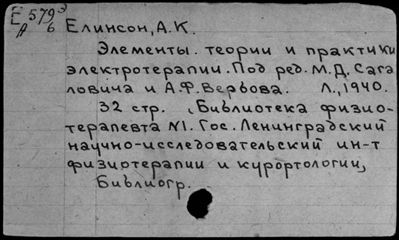 Е 579
А 6
Елинсон, А.К.
Элементы теории и практики
электротерапии. Под ред. М.Д. Сага
ловича и А.Ф. Вербова. Л., 1940.
32 стр. (Библиотека физио-
терапевта №1. Гос. Ленинградский
научно-исследовательский ин-т
физиотерапии и курортологии)
Библиогр.